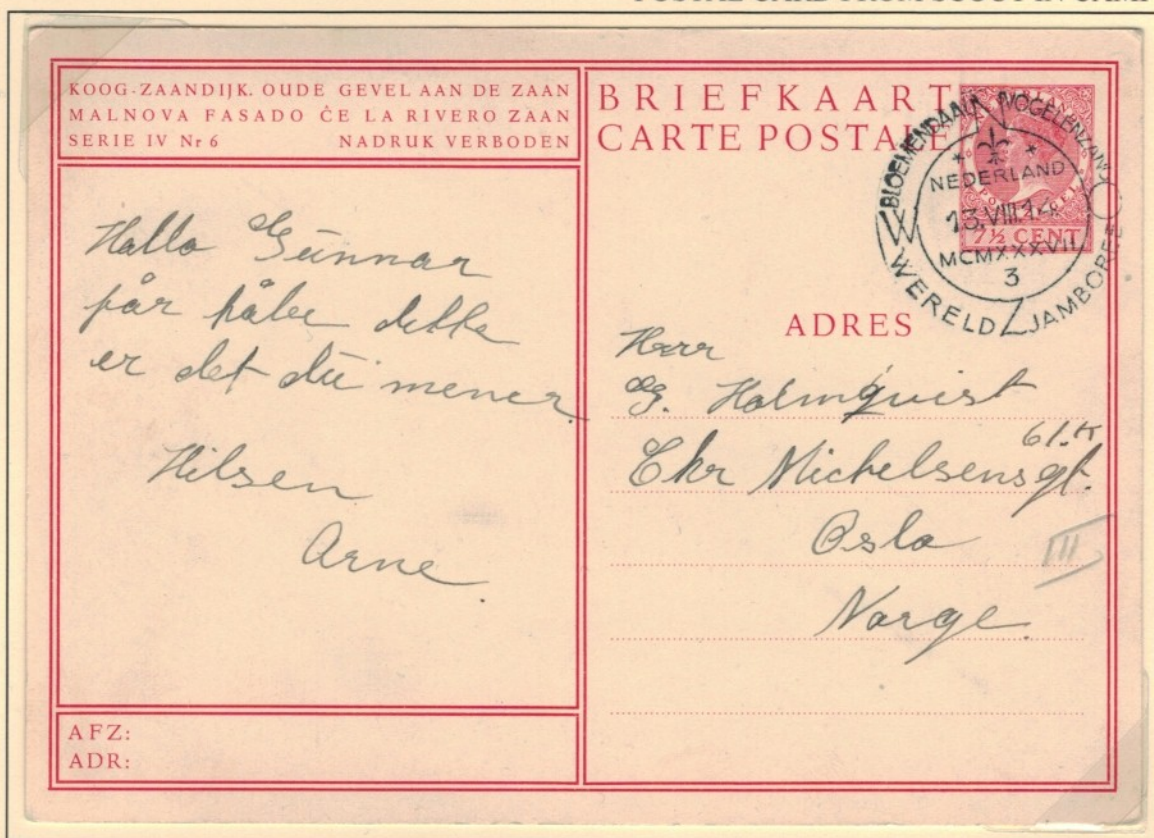 POSTAL CARD FROM SCOUT IN CAMP
KOOG-ZAANDIJK. OUDE GEVEL AAN DE ZAAN
MALNOVA FASADO ĈE LA RIVERO ZAAN
SERIE IV Nr 6 NADRUK VERBODEN
Hallo Gunnar
får håbe dette
er det du mener.
Hilsen
Arne.
AFZ:
ADR:
BRIEFKAART
CARTE POSTALE
7½ CENT
BLOEMENDAAL VOGELENZANG
NEDERLAND
13.VIII.14
MCMXXXVII
3
WERELD JAMBOREE
ADRES
Herr
G. Holmquist
61.K
Chr Michelsensgt.
Oslo
III
Norge.